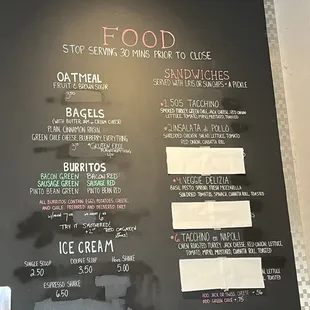 FOOD
STOP SERVING 30 MINS PRIOR TO CLOSE
OATMEAL
FRUIT & BROWN SUGAR
BAGELS
(WITH BUTTER, JAM OR CREAM CHEESE)
PLAIN, CINNAMON RAISIN,
GREEN CHILE CHEESE, BLUEBERRY, EVERYTHING
BURRITOS
BACON GREEN BACON RED
SAUSAGE GREEN SAUSAGE RED
PINTO BEAN GREEN PINTO BEAN RED
ALL BURRITOS CONTAIN EGGS, POTATOES, CHEESE,
AND CHILE. PREPARED AND DELIVERED DAILY
TRY IT SMOTHERED!
ICE CREAM
SINGLE SCOOP DOUBLE SCOOP SHAKE
2.50 3.50 5.00
ESPRESSO SHAKE
6.50
SANDWICHES
SERVED WITH LAYS OR SUN CHIPS + A PICKLE
1. 505 TACCHINO
SMOKED TURKEY, GREEN CHILE, JACK CHEESE, RED ONION
LETTUCE, TOMATO, MAYO, MUSTARD, CIABATTA ROLL
2. INSALATA di POLLO
SHREDDED CHICKEN SALAD, LETTUCE, TOMATO,
RED ONION, CIABATTA ROLL
4. VEGGIE DELIZIA
BASIL PESTO SPREAD, FRESH MOZZARELLA,
SUNDRIED TOMATOES, SPINACH, CIABATTA ROLL, TOASTED
6. TACCHINO di NAPOLI
OVEN ROASTED TURKEY, JACK CHEESE, RED ONION, LETTUCE
TOMATO, MAYO, MUSTARD, CIABATTA ROLL, TOASTED
LETTUCE
TOASTED
ADD JACK OR SWISS CHEESE
ADD GREEN CHILE